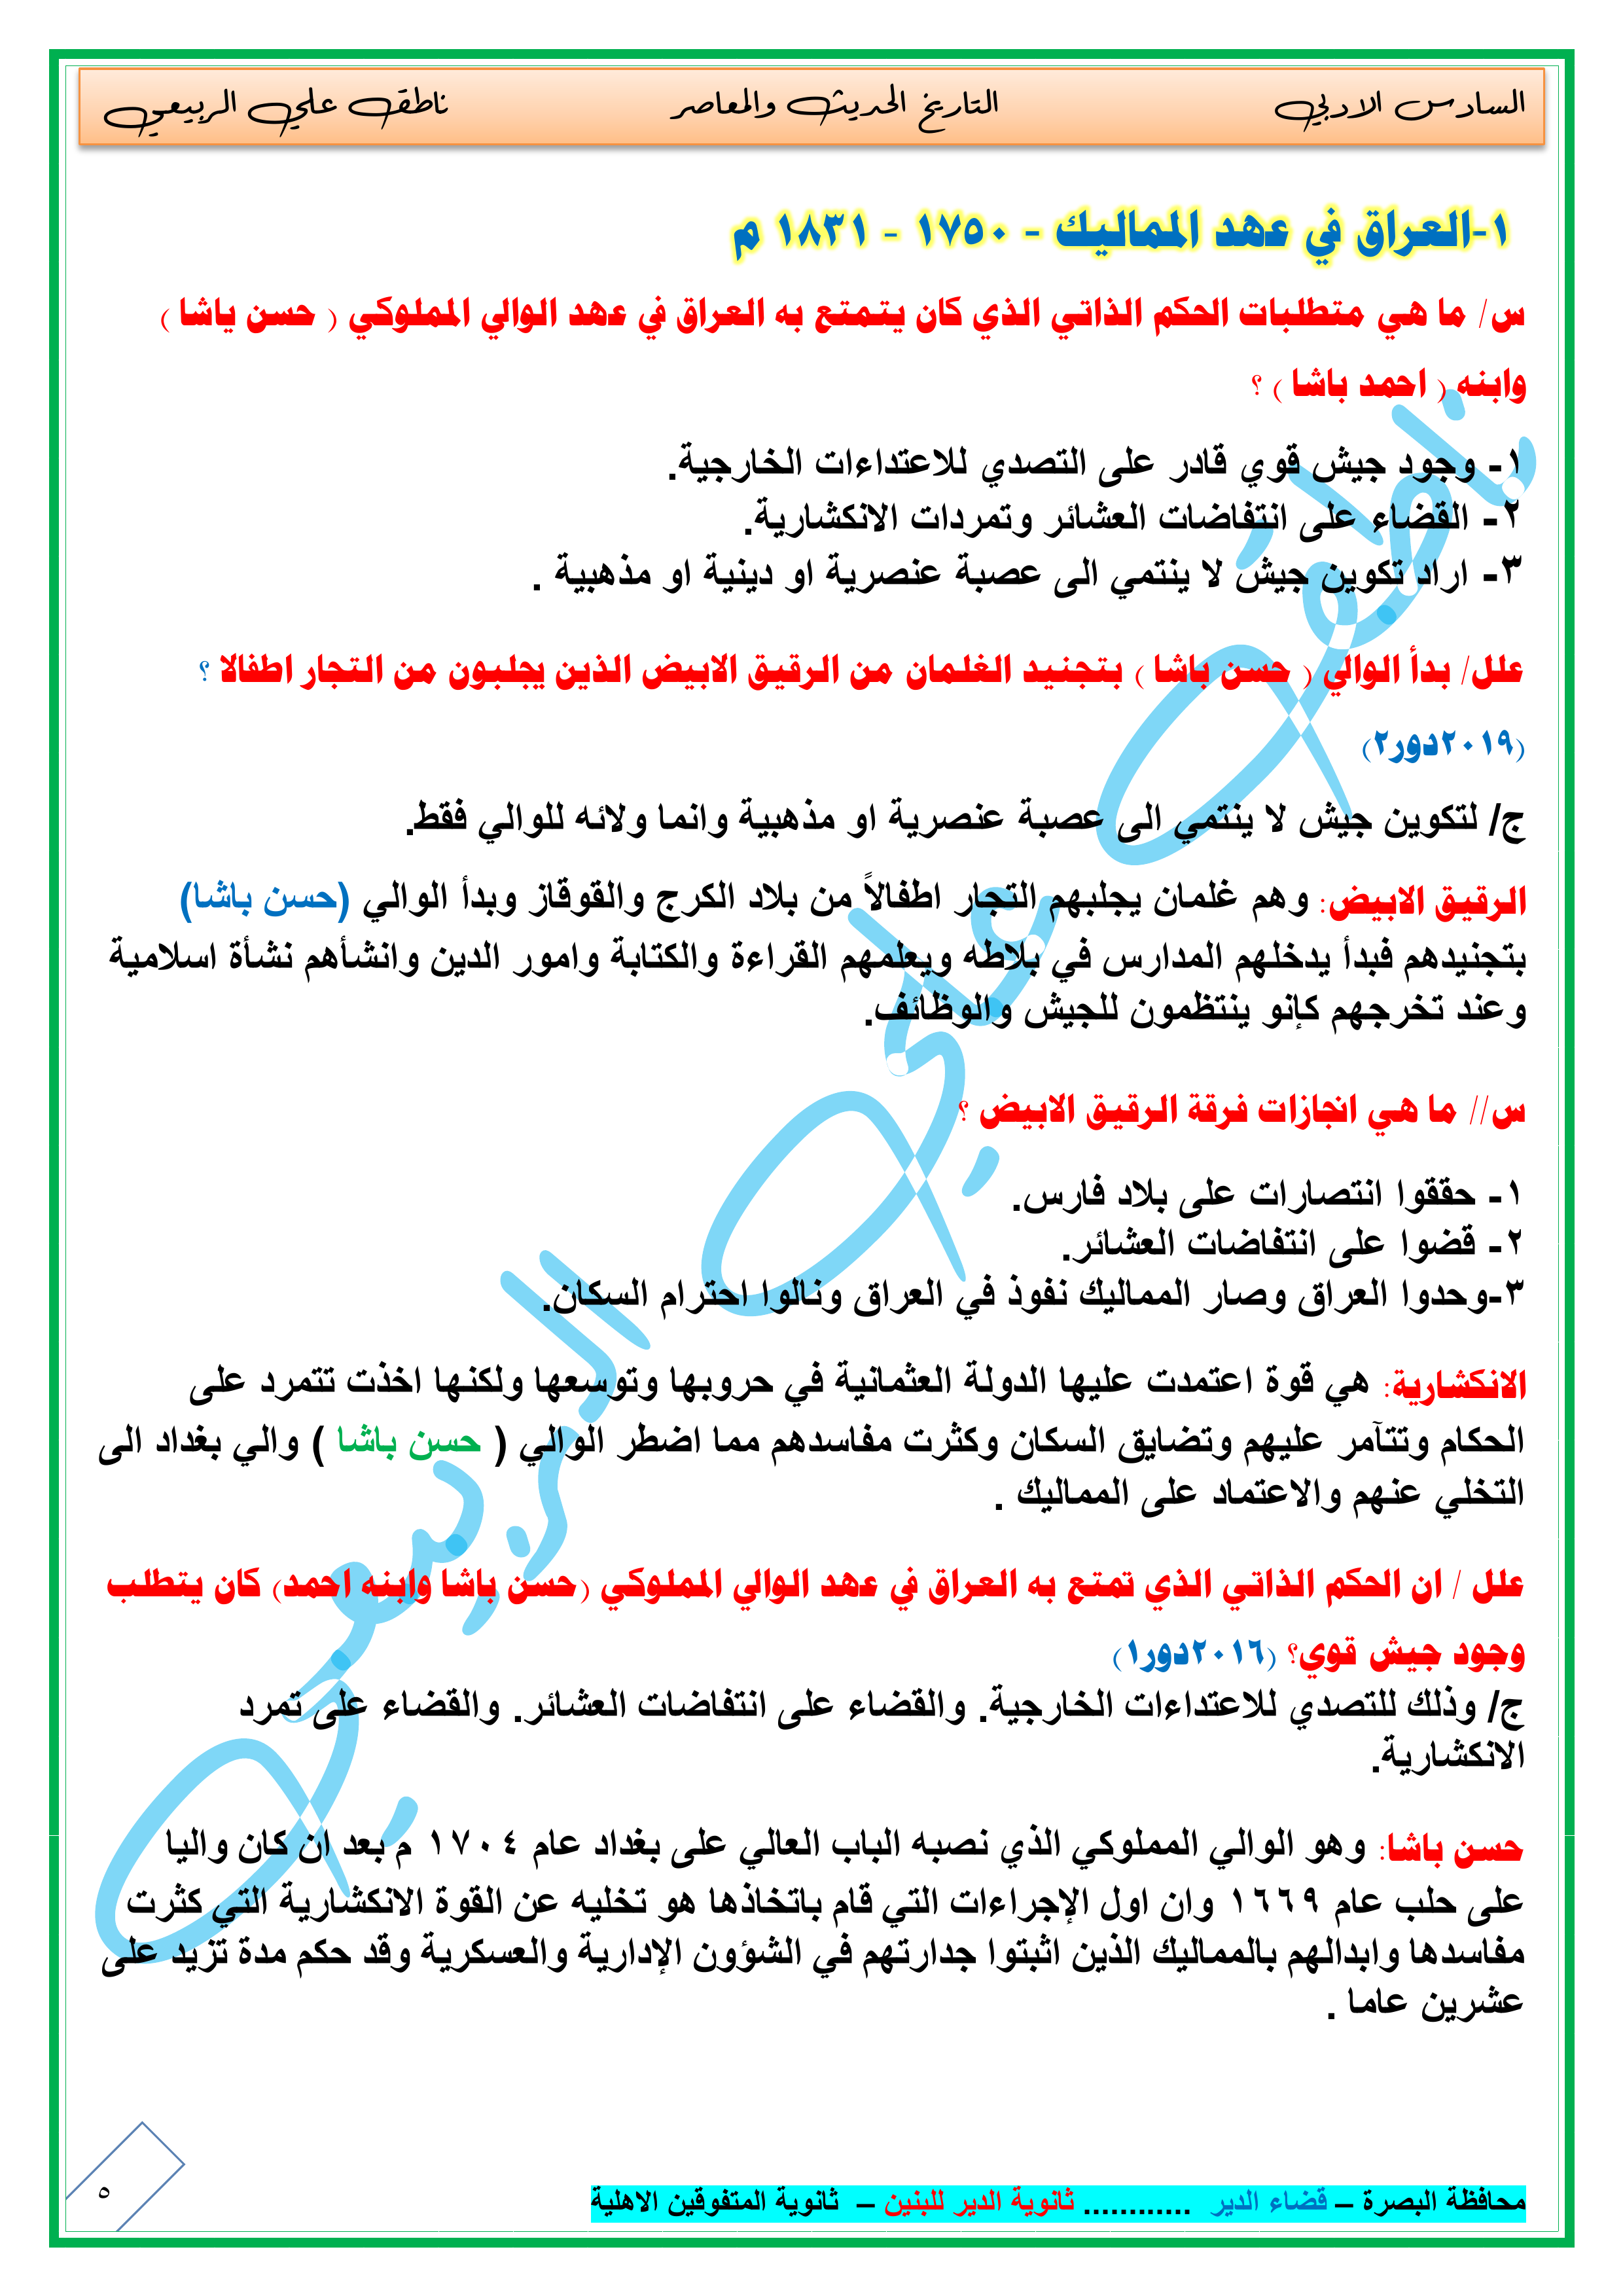 السادس الادبي التاريخ الحديث والمعاصر ناطق علي الربيعي
١-العراق في عهد المماليك - ١٧٥٠ - ١٨٣١ م
س/ ما هي متطلبات الحكم الذاتي الذي كان يتمتع به العراق في عهد الوالي المملوكي ( حسن ياشا )
وابنه ( احمد باشا ) ؟
١- وجود جيش قوي قادر على التصدي للاعتداءات الخارجية.
٢- القضاء على انتفاضات العشائر وتمردات الانكشارية.
٣- اراد تكوين جيش لا ينتمي الى عصبة عنصرية او دينية او مذهبية .
علل/ بدأ الوالي ( حسن باشا ) بتجنيد الغلمان من الرقيق الابيض الذين يجلبون من التجار اطفالا ؟
(٢٠١٩دور٢)
ج/ لتكوين جيش لا ينتمي الى عصبة عنصرية او مذهبية وانما ولائه للوالي فقط.
الرقيق الابيض: وهم غلمان يجلبهم التجار اطفالاً من بلاد الكرج والقوقاز وبدأ الوالي (حسن باشا)
بتجنيدهم فبدأ يدخلهم المدارس في بلاطه ويعلمهم القراءة والكتابة وامور الدين وانشأهم نشأة اسلامية
وعند تخرجهم كإنو ينتظمون للجيش والوظائف.
س// ما هي انجازات فرقة الرقيق الابيض ؟
١- حققوا انتصارات على بلاد فارس.
٢- قضوا على انتفاضات العشائر.
٣-وحدوا العراق وصار المماليك نفوذ في العراق ونالوا احترام السكان.
الانكشارية: هي قوة اعتمدت عليها الدولة العثمانية في حروبها وتوسعها ولكنها اخذت تتمرد على
الحكام وتتآمر عليهم وتضايق السكان وكثرت مفاسدهم مما اضطر الوالي ( حسن باشا ) والي بغداد الى
التخلي عنهم والاعتماد على المماليك .
علل / ان الحكم الذاتي الذي تمتع به العراق في عهد الوالي المملوكي (حسن باشا وابنه احمد) كان يتطلب
وجود جيش قوي؟ (٢٠١٦دور١)
ج/ وذلك للتصدي للاعتداءات الخارجية. والقضاء على انتفاضات العشائر. والقضاء على تمرد
الانكشارية.
حسن باشا: وهو الوالي المملوكي الذي نصبه الباب العالي على بغداد عام ١٧٠٤ م بعد ان كان واليا
على حلب عام ١٦٦٩ وان اول الإجراءات التي قام باتخاذها هو تخليه عن القوة الانكشارية التي كثرت
مفاسدها وابدالهم بالمماليك الذين اثبتوا جدارتهم في الشؤون الإدارية والعسكرية وقد حكم مدة تزيد على
عشرين عاما .
ناطق علي الربيعي
محافظة البصرة – قضاء الدير ............ ثانوية الدير للبنين – ثانوية المتفوقين الاهلية
٥